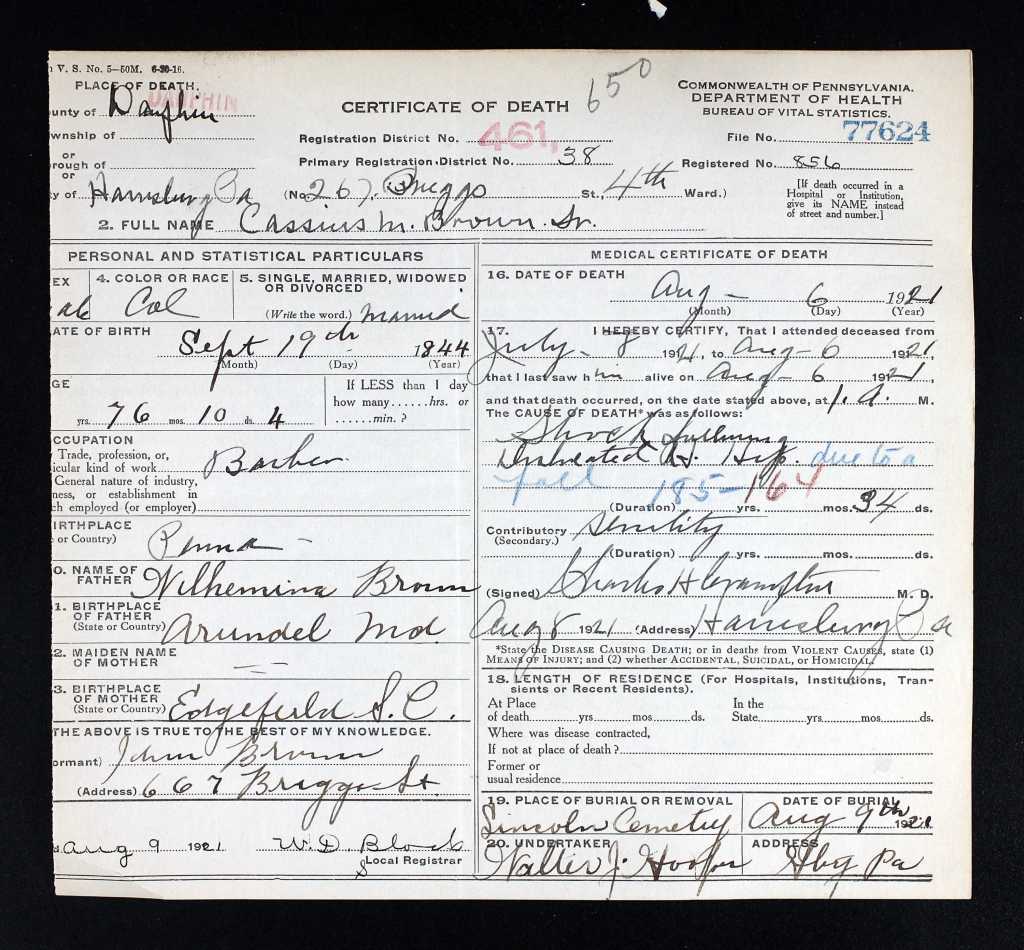 V. S. No. 5—50M. 6-30-16.
PLACE OF DEATH.
DAUPHIN
unty of Dauphin
wnship of
or
rough of
or
y of Harrisburg Pa (No. 267, Briggs St., 4th Ward.)
CERTIFICATE OF DEATH
650
Registration District No. 461,
Primary Registration District No. 38
COMMONWEALTH OF PENNSYLVANIA.
DEPARTMENT OF HEALTH
BUREAU OF VITAL STATISTICS.
File No. 77624
Registered No. 856
[If death occurred in a
Hospital or Institution,
give its NAME instead
of street and number.]
2. FULL NAME Cassius M. Brown. Sr.
PERSONAL AND STATISTICAL PARTICULARS
EX
ale
4. COLOR OR RACE
Col
5. SINGLE, MARRIED, WIDOWED
OR DIVORCED
(Write the word.) Married
ATE OF BIRTH
Sept 19th 1844
(Month) (Day) (Year)
GE
76 yrs. 10 mos. 4 ds.
If LESS than 1 day
how many......hrs. or
......min.?
OCCUPATION
Trade, profession, or,
icular kind of work Barber
General nature of industry,
ness, or establishment in
ch employed (or employer)
IRTHPLACE
e or Country) Penna —
0. NAME OF
FATHER Wilhemina Brown
1. BIRTHPLACE
OF FATHER
(State or Country) Arundel Md
2. MAIDEN NAME
OF MOTHER
3. BIRTHPLACE
OF MOTHER
(State or Country) Edgefield S.C.
THE ABOVE IS TRUE TO THE BEST OF MY KNOWLEDGE.
ormant) John Brown
(Address) 667 Briggs St.
Aug 9 1921 W.D. Block
Local Registrar
MEDICAL CERTIFICATE OF DEATH
16. DATE OF DEATH
Aug — 6 1921
(Month) (Day) (Year)
17. I HEREBY CERTIFY, That I attended deceased from
July - 8 1921, to Aug - 6 1921,
that I last saw him alive on Aug - 6 1921,
and that death occurred, on the date stated above, at 1. A. M.
The CAUSE OF DEATH* was as follows:
Shock following
Hip. due to a
fall 185-164
(Duration) yrs. mos. 34 ds.
Contributory Senility
(Secondary.)
(Duration) yrs. mos. ds.
(Signed) Charles H Crampton M. D.
Aug 8 1921 (Address) Harrisburg Pa
*State the DISEASE CAUSING DEATH; or in deaths from VIOLENT CAUSES, state (1)
MEANS OF INJURY; and (2) whether ACCIDENTAL, SUICIDAL, or HOMICIDAL.
18. LENGTH OF RESIDENCE (For Hospitals, Institutions, Tran-
sients or Recent Residents).
At Place In the
of death yrs mos. ds. State yrs. mos. ds.
Where was disease contracted,
If not at place of death?
Former or
usual residence
19. PLACE OF BURIAL OR REMOVAL
Lincoln Cemetry
DATE OF BURIAL
Aug 9th 1921
20. UNDERTAKER
Walter J. Hooper
ADDRESS
Hbg Pa